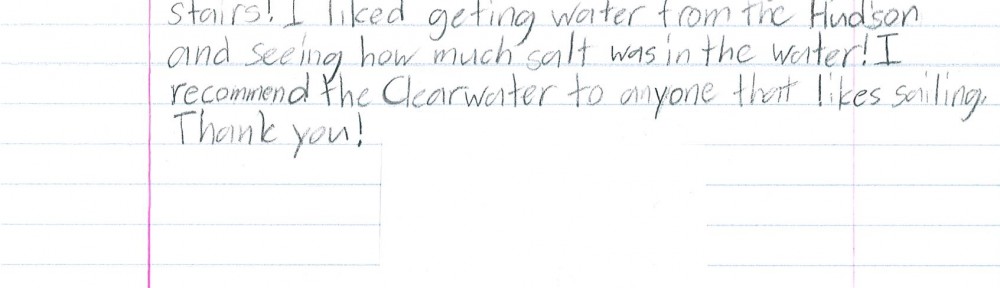 stairs! I liked geting water from the Hudson
and seeing how much salt was in the water! I
recommend the Clearwater to anyone that likes sailing.
Thank you!